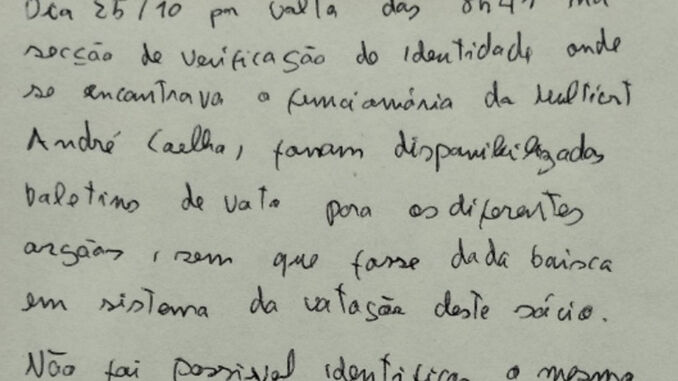 Dia 25/10 por volta das 8h47 na
secção de verificação do identidade onde
se encontrava o funcionário da Multicert
André Coelho, foram disponibilizados
boletins de voto para os diferentes
orgãos, sem que fosse dada baixa
em sistema da votação deste sócio.
Não foi possivel identificar o mesmo